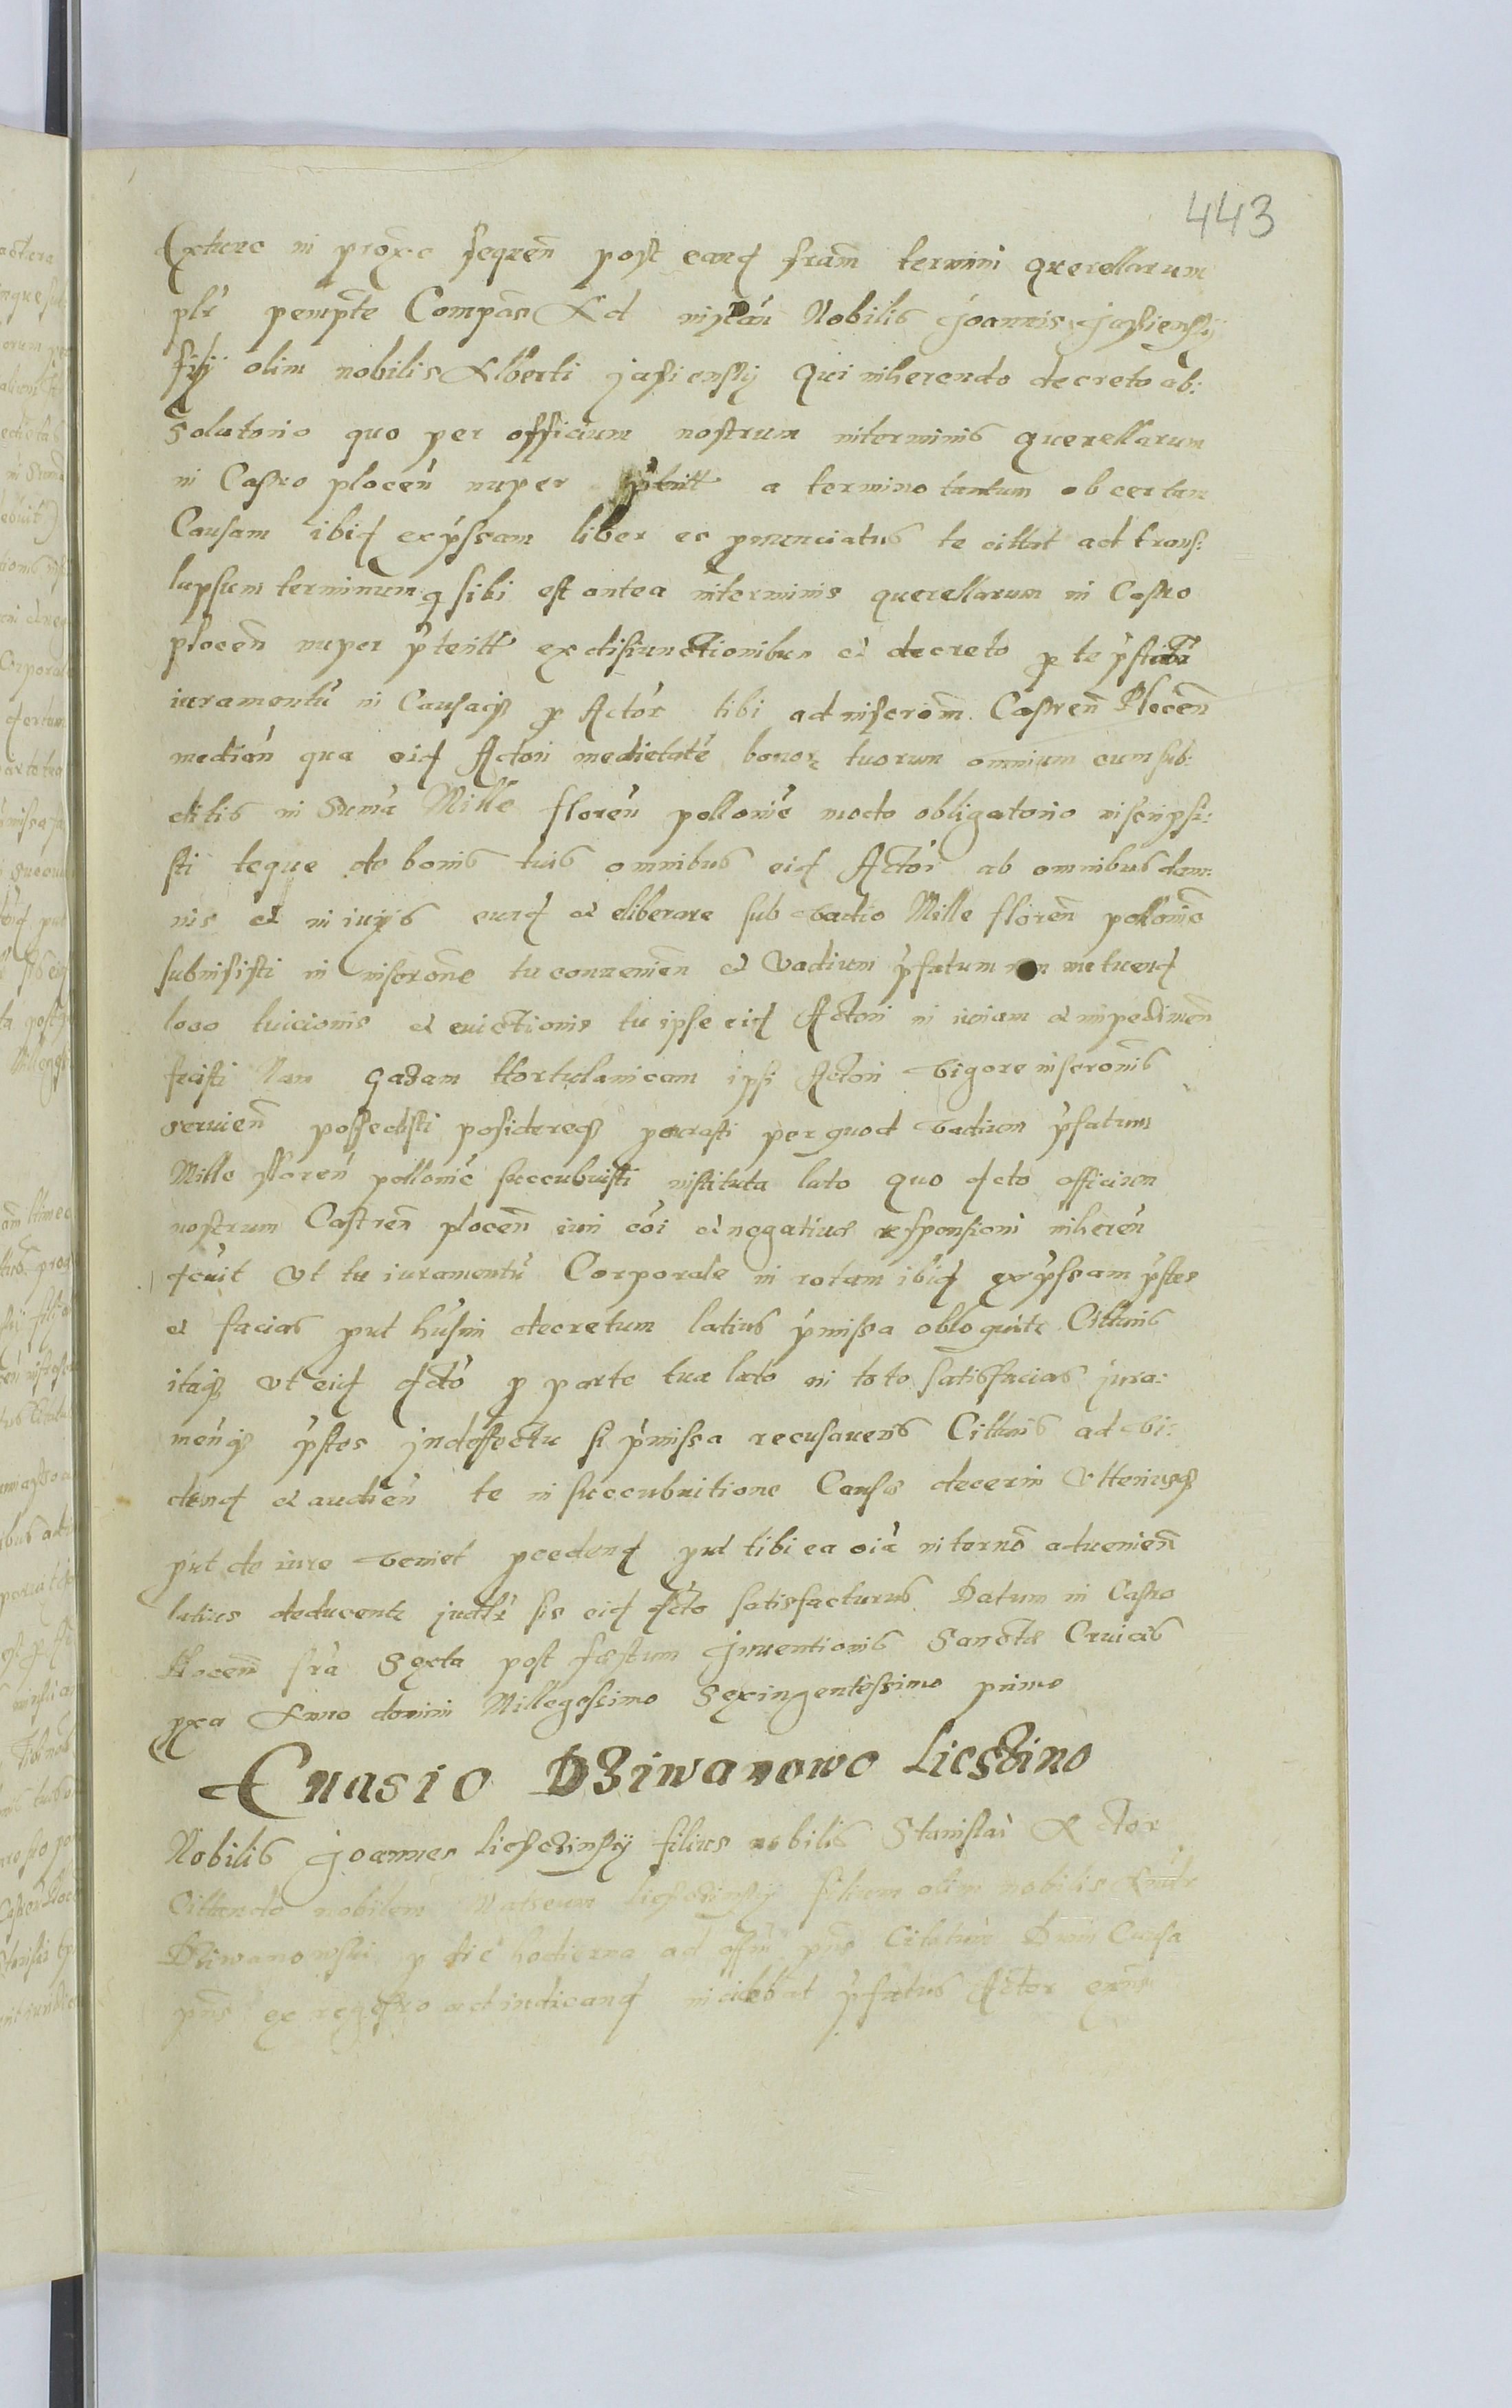 443
Extunc in proxe sequen post eand fram termini querellarum
plr pempte Compas Ad instan Nobilis Joannis Jasiensky
filij olim nobilis Alberti Jasiensky qui inherendo decreto ab:
solutorio quo per officium nostrum interminis querellarum
in Castro plocen nuper pterit a termino tantum ob certam
Causam ibid expssam liber es pnunciatus te cittat ad trans:
lapsum terminum q sibi est antea interminis querellarum in Castro
plocen nuper pteritt ex disiunctionibus et decreto p te pstita
iuramentu in Causaq p Actor tibi ad inscrom Castren Plocen
median qua eid Actori medietate bonor tuorum omnium cum sub:
ditis in Suma Mille floren pollonic modo obligatorio inscripsi:
sti teque de bonis tuis omnibus eid Actori ab omnibus dam:
nis et iniurijs eund et eliberare sub vadio Mille floren pollonic
submisisti in inscrone tu contenien et vadium pfatum non metuend
loco tuicionis et euictionis tu ipse eid Actori in iuriam et impedimen
fecisti Nam gazam Hortulanicam ipsi Actori vigore inscronis
seruien possedisti posidereq procurasti per quod vadium pfatum
Mille floren pollonic succubuisti instituta lato quo dcto officium
nostrum Castren plocen iuri coi et negatiuae responsioni inheren
dcuit Vt tu iuramentu Corporale in rotam ibid expssam pstes
et facias put husmi decretum latius pmissa obloquit Cittaris
itaq vt eid dcto p parte tua lato in toto satisfacias jura:
menq pstes jndeffectu si pmissa recusaueris Cittaris ad vi:
dend et audien te in succubuitione Causae decerni Vlteriusq
put de iure veniet pcedend put tibi ea oia in terno aduenien
latius deducentr judlr sis eid dcto satisfacturus Datum in Castro
Plocen fra Sexta post festum Inuentionis Sanctae Crucis
pxa Anno domini Millegesimo Sexingentessimo primo
Euasio Dziwanowo Liesczino
Nobilis Joannes Liesczinsky filius nobilis Stanislai Actor
Cittando nobilem Liesczinsky filium olim nobilis
Dziwanowski p die hodierna ad pns Citatum Causa
pns ex regestro ad iudicand incidebat pfatus Actor